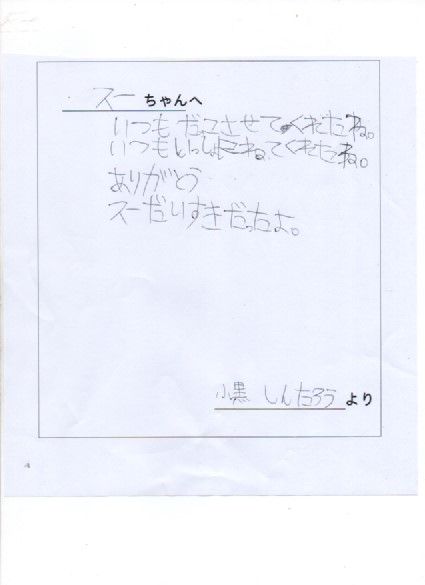 スーちゃんへ
いつもだっこさせてくれたね。
いつもいっしょにねてくれたね。
ありがとう
スーだいすきだったよ。
小黒 しんたろうより